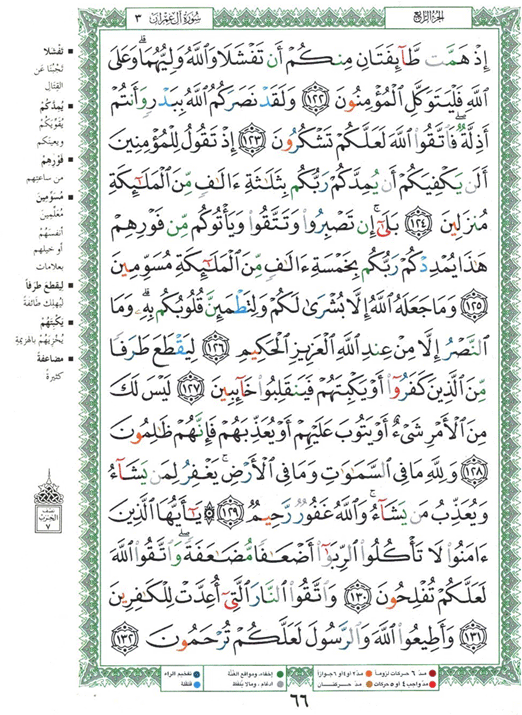 الجزء الرابع
سورة آل عمران ٣
إِذْ هَمَّت طَّآئِفَتَانِ مِنكُمْ أَن تَفْشَلَا وَٱللَّهُ وَلِيُّهُمَا ۗ وَعَلَى
ٱللَّهِ فَلْيَتَوَكَّلِ ٱلْمُؤْمِنُونَ ١٢٢ وَلَقَدْ نَصَرَكُمُ ٱللَّهُ بِبَدْرٍ وَأَنتُمْ
أَذِلَّةٌ ۖ فَٱتَّقُوا۟ ٱللَّهَ لَعَلَّكُمْ تَشْكُرُونَ ١٢٣ إِذْ تَقُولُ لِلْمُؤْمِنِينَ
أَلَن يَكْفِيَكُمْ أَن يُمِدَّكُمْ رَبُّكُم بِثَلَـٰثَةِ ءَالَـٰفٍ مِّنَ ٱلْمَلَـٰٓئِكَةِ
مُنزَلِينَ ١٢٤ بَلَىٰٓ ۚ إِن تَصْبِرُوا۟ وَتَتَّقُوا۟ وَيَأْتُوكُم مِّن فَوْرِهِمْ
هَـٰذَا يُمْدِدْكُمْ رَبُّكُم بِخَمْسَةِ ءَالَـٰفٍ مِّنَ ٱلْمَلَـٰٓئِكَةِ مُسَوِّمِينَ
١٢٥ وَمَا جَعَلَهُ ٱللَّهُ إِلَّا بُشْرَىٰ لَكُمْ وَلِتَطْمَئِنَّ قُلُوبُكُم بِهِۦ ۗ وَمَا
ٱلنَّصْرُ إِلَّا مِنْ عِندِ ٱللَّهِ ٱلْعَزِيزِ ٱلْحَكِيمِ ١٢٦ لِيَقْطَعَ طَرَفًا
مِّنَ ٱلَّذِينَ كَفَرُوٓا۟ أَوْ يَكْبِتَهُمْ فَيَنقَلِبُوا۟ خَآئِبِينَ ١٢٧ لَيْسَ لَكَ
مِنَ ٱلْأَمْرِ شَىْءٌ أَوْ يَتُوبَ عَلَيْهِمْ أَوْ يُعَذِّبَهُمْ فَإِنَّهُمْ ظَـٰلِمُونَ
١٢٨ وَلِلَّهِ مَا فِى ٱلسَّمَـٰوَٰتِ وَمَا فِى ٱلْأَرْضِ ۚ يَغْفِرُ لِمَن يَشَآءُ
وَيُعَذِّبُ مَن يَشَآءُ ۚ وَٱللَّهُ غَفُورٌ رَّحِيمٌ ١٢٩ ۞ يَـٰٓأَيُّهَا ٱلَّذِينَ
ءَامَنُوا۟ لَا تَأْكُلُوا۟ ٱلرِّبَوٰٓا۟ أَضْعَـٰفًا مُّضَـٰعَفَةً ۖ وَٱتَّقُوا۟ ٱللَّهَ
لَعَلَّكُمْ تُفْلِحُونَ ١٣٠ وَٱتَّقُوا۟ ٱلنَّارَ ٱلَّتِىٓ أُعِدَّتْ لِلْكَـٰفِرِينَ
١٣١ وَأَطِيعُوا۟ ٱللَّهَ وَٱلرَّسُولَ لَعَلَّكُمْ تُرْحَمُونَ ١٣٢
تَفْشَلا
تَجْبُنا عن
القِتَال
يُمِدَّكُمْ
يُقَوِّيَكُم
ويعينكم
فَوْرِهِمْ
من ساعتهم
مُسَوِّمِينَ
مُعَلِّمين
أنفسَهُمْ
أو خيلهم
بعلامات
لِيَقْطَعَ طَرَفاً
ليُهلِك طائفة
يَكْبِتَهُمْ
يُخْزِيَهُم بالهزيمة
مضاعفة
كثيرة
نصف
الحزب
٧
مدّ ٦ حركات لزوماً
مدّ ٢ أو ٤ أو ٦ جوازاً
إخفاء، ومواقع الغُنَّة
تفخيم الراء
مدّ واجب ٤ أو ٥ حركات
مدّ حركتان
إدغام، وما لا يُلفَظ
قلقلة
٦٦